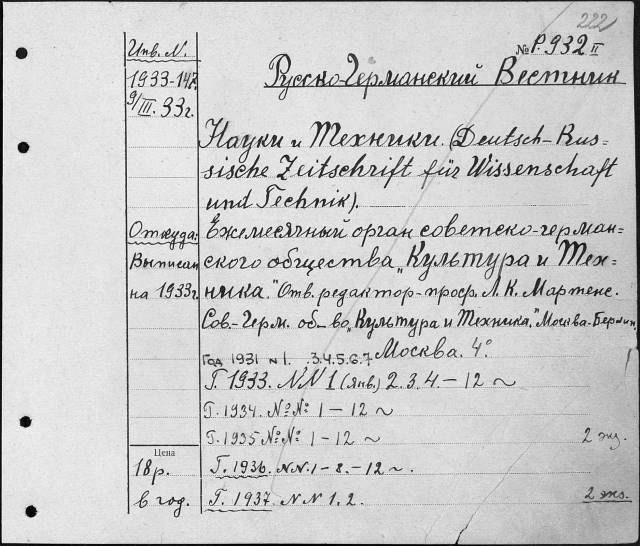 222
Инв. N.
№ P. 932 II
1933-147.
9/III. 33г.
Русско-Германский Вестник
Науки и Техники. (Deutsch-Rus=
sische Zeitschrift für Wissenschaft
und Technik).
Откуда:
Ежемесячный орган советско-герман=
Выписан
ского общества „Культура и Тех=
на 1933г.
ника." Отв. редактор-проф. Л. К. Мартенс.
Сов.-Герм. об-во „Культура и Техника." Москва-Берлин.
Год 1931 N 1. 3.4.5.6.7 Москва. 4°
Г. 1933. NN 1 (янв.) 2. 3. 4. – 12 ~
Г. 1934. №№ 1 – 12 ~
Г. 1935 №№ 1 – 12 ~ 2 экз.
Цена
18 р. Г. 1936. NN. 1 – 8. – 12 ~.
в год. Г. 1937. NN 1. 2. 2 экз.